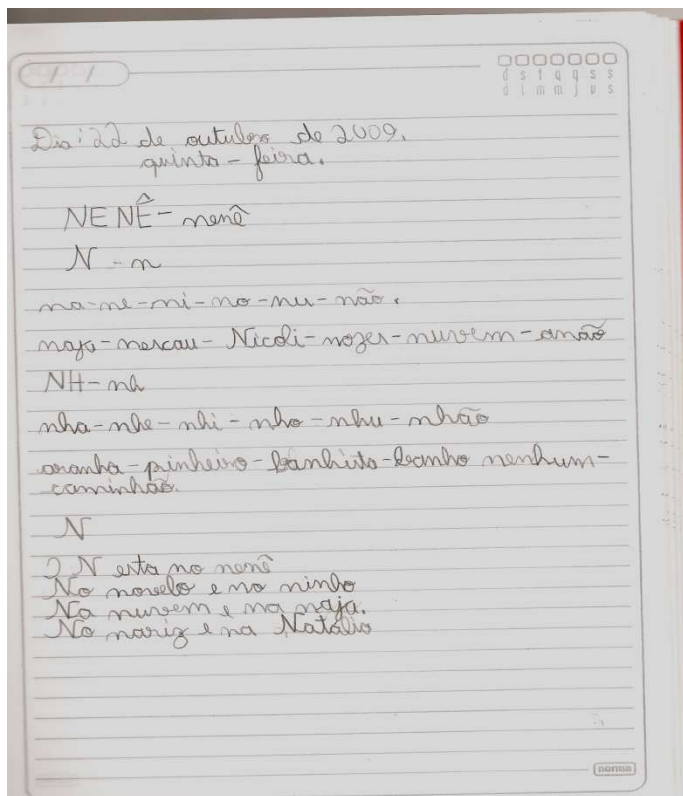 / /
d s t q q s s
d l m m j v s
Dia: 22 de outubro de 2009.
quinta-feira.
NENÊ - nenê
N - n
na-ne-ni-no-nu-não.
naja-nescau-Nicoli-nozes-nuvem-anão
NH-nh
nha-nhe-nhi-nho-nhu-nhão
aranha-pinheiro-banhista-banho nenhum-
caminhão.
N
O N esta no nenê
No novelo e no ninho
Na nuvem e na naja.
No nariz e na Natália
norma